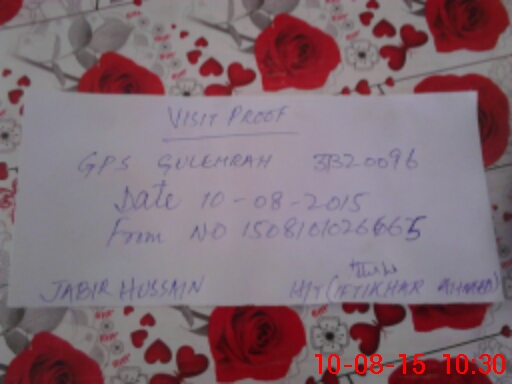 VISIT PROOF
GPS GULEHRAH 3320096
Date 10-08-2015
From NO 1508101026665
JABIR HUSSAIN H/T (IFTIKHAR AHMAD)
10-08-15 10:30